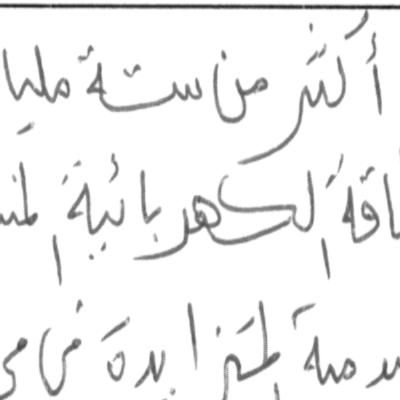 أكثر من ستة مليا
اقة الكهربائية المنـ
المتزايدة في